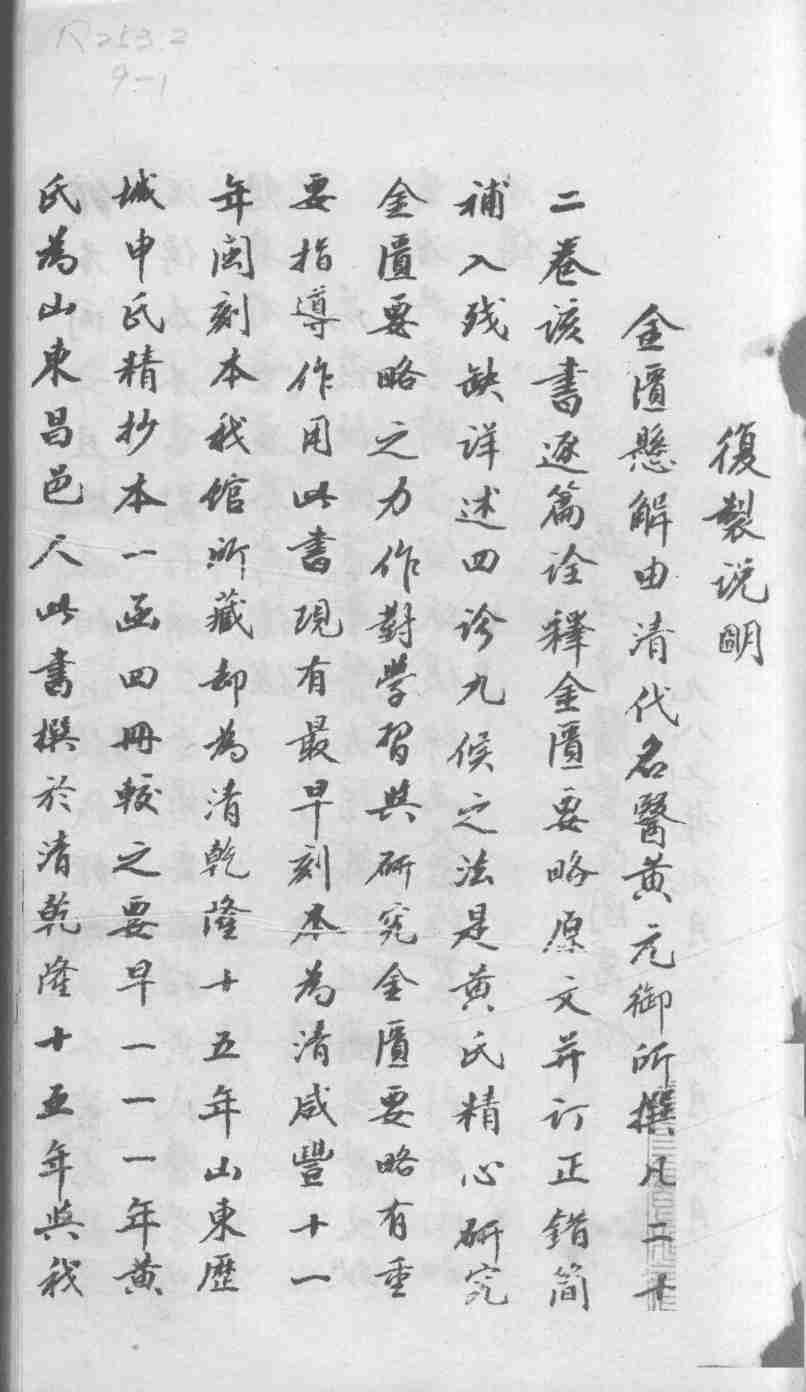 R253.2
9-1
復製说明
金匱懸解由清代名醫黄元御所撰凡二十
二卷该書逐篇诠釋金匱要略原文并订正錯简
補入残缺详述四诊九候之法是黄氏精心研究
金匱要略之力作對學習與研究金匱要略有重
要指導作用此書现有最早刻本為清咸豐十一
年闽刻本我馆所藏却為清乾隆十五年山東歷
城申氏精抄本一函四冊較之要早一一一年黄
氏為山東昌邑人此書撰於清乾隆十五年與我